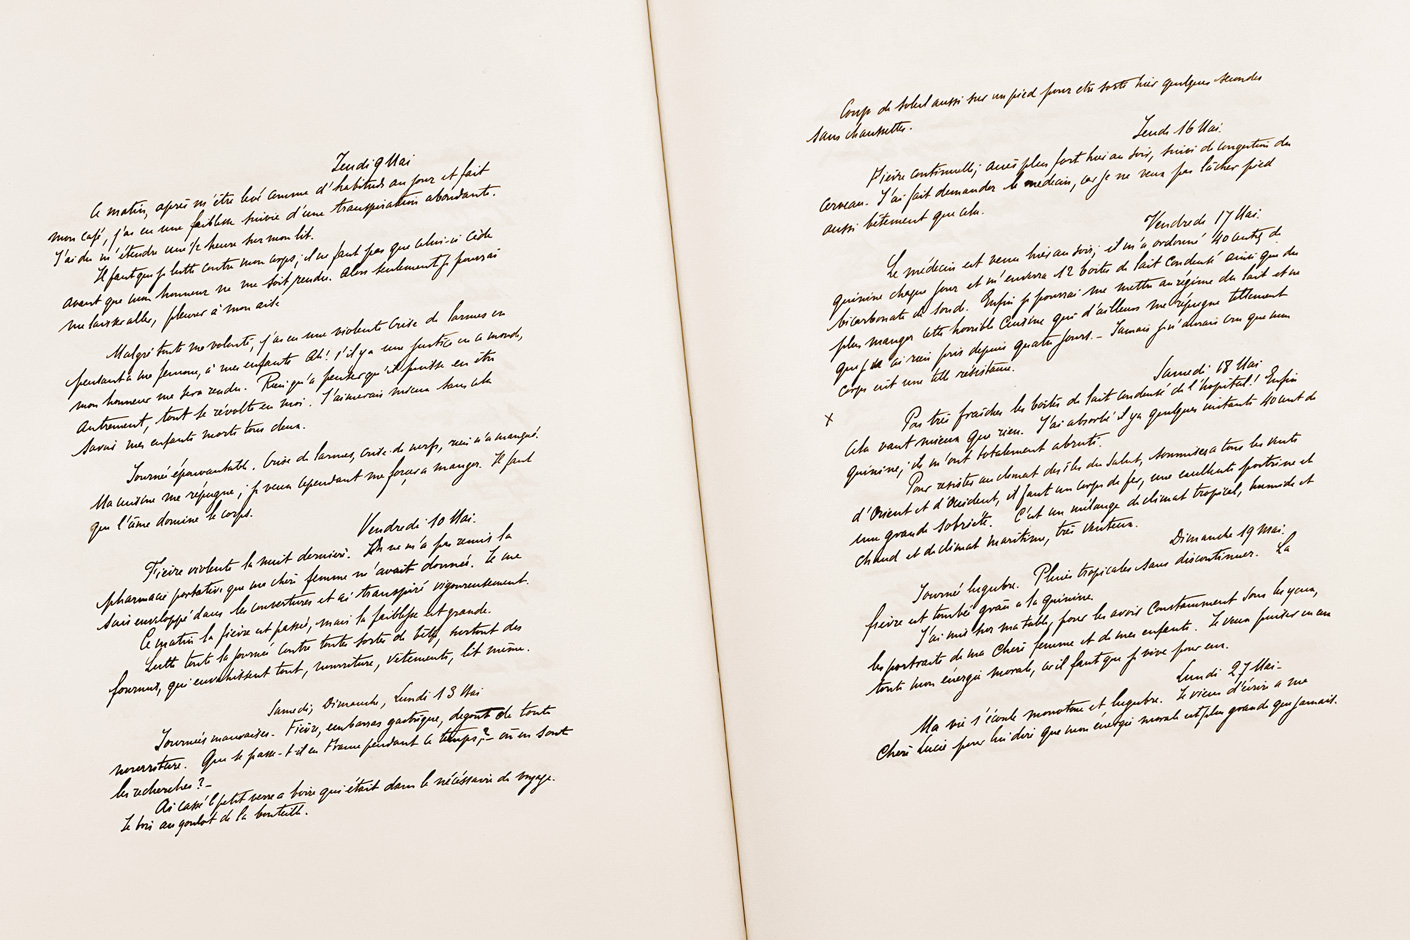 Jeudi 9 Mai
Ce matin, après m'être levé comme d'habitude au jour et fait
mon café, j'ai eu une faiblesse suivie d'une transpiration abondante.
J'ai dû m'étendre une ½ heure sur mon lit.
Il faut que je lutte contre mon corps; il ne faut pas que celui-ci cède
avant que mon honneur ne me soit rendu. Alors seulement je pourrai
me laisser aller, pleurer à mon aise.
Malgré toute ma volonté, j'ai eu une violente crise de larmes en
pensant à ma femme, à mes enfants. Ah! s'il y a une justice en ce monde,
mon honneur me sera rendu. Rien qu'à penser qu'il puisse en être
autrement, tout se révolte en moi. J'aimerais mieux sans cela
savoir mes enfants morts tous deux.
Journée épouvantable. Crise de larmes, crise de nerfs, rien n'a manqué.
Ma cuisine me répugne; je veux cependant me forcer à manger. Il faut
que l'âme domine le corps.
Vendredi 10 Mai.
Fièvre violente la nuit dernière. On ne m'a pas remis la
pharmacie portative que ma chère femme m'avait donnée. Je me
suis enveloppé dans les couvertures et ai transpiré vigoureusement.
Ce matin la fièvre est passée, mais la faiblesse est grande.
Lutte toute la journée contre toute sorte de bêtes, surtout des
fourmis, qui envahissent tout, nourriture, vêtements, lit même.
Samedi, Dimanche, Lundi 13 Mai
Journées mauvaises. Fièvre, embarras gastrique, dégoût de toute
nourriture. Que se passe-t-il en France pendant ce temps? – où en sont
les recherches? –
Ai cassé le petit verre à boire qui était dans le nécessaire de voyage.
Je bois au goulot de la bouteille.
Coup de soleil aussi sur un pied pour être sorti hier quelques secondes
sans chaussette.
Jeudi 16 Mai.
Fièvre continuelle; accès plus fort hier au soir, suivi de congestion du
cerveau. J'ai fait demander le médecin, car je ne veux pas lâcher pied
aussi bêtement que cela.
Vendredi 17 Mai.
Le médecin est venu hier au soir; il m'a ordonné 40 centig. de
quinine chaque jour et m'enverra 12 boîtes de lait condensé ainsi que du
bicarbonate de soude. Enfin je pourrai me mettre au régime du lait et ne
plus manger cette horrible cuisine qui d'ailleurs me répugne tellement
que je n'ai rien pris depuis quatre jours. – Jamais je n'aurais cru que mon
corps eût une telle résistance.
Samedi 18 Mai
x Pas très fraîches les boîtes de lait condensé de l'hôpital! Enfin
cela vaut mieux que rien. J'ai absorbé il y a quelques instants 40 cent de
quinine; ils m'ont totalement abruti.
Pour résister au climat des îles du Salut, soumises à tous les vents
d'Orient et d'Occident, il faut un corps de fer, une excellente poitrine et
une grande sobriété. C'est un mélange de climat tropical, humide et
chaud et de climat maritime, très venteux.
Dimanche 19 Mai.
Journée lugubre. Pluies tropicales sans discontinuer. La
fièvre est tombée grâce à la quinine.
J'ai mis sur ma table, pour les avoir constamment sous les yeux,
les portraits de ma chère femme et de mes enfants. Je veux puiser en eux
toute mon énergie morale, car il faut que je vive pour eux.
Lundi 27 Mai –
Ma vie s'écoule monotone et lugubre. Je viens d'écrire à ma
chère Lucie pour lui dire que mon énergie morale est plus grande que jamais.